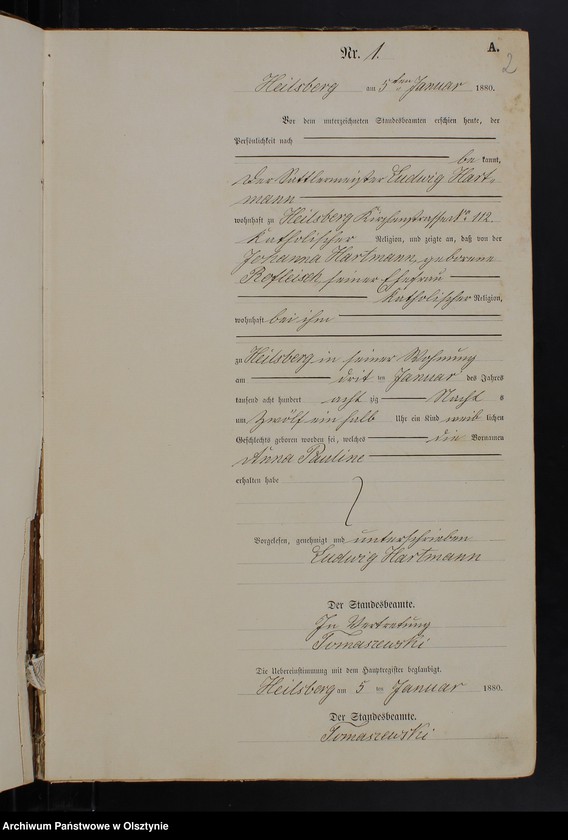 Nr. 1.
A.
2
Heilsberg am 5ten Januar 1880.
Vor dem unterzeichneten Standesbeamten erschien heute, der
Persönlichkeit nach
bekannt,
der Sattlermeister Ludwig Hart-
mann
wohnhaft zu Heilsberg Kirchenstrasse No. 112
katholischer Religion, und zeigte an, daß von der
Johanna Hartmann geborene
Rofleisch seiner Ehefrau
katholischer Religion,
wohnhaft bei ihm
zu Heilsberg in seiner Wohnung
am dritten Januar des Jahres
tausend acht hundert achtzig Nachts
um zwölf ein halb Uhr ein Kind weiblichen
Geschlechts geboren worden sei, welches die Vornamen
Anna Pauline
erhalten habe
Vorgelesen, genehmigt und unterschrieben
Ludwig Hartmann
Der Standesbeamte.
In Vertretung
Tomaszewski
Die Uebereinstimmung mit dem Hauptregister beglaubigt.
Heilsberg am 5ten Januar 1880.
Der Standesbeamte.
Tomaszewski
Archiwum Państwowe w Olsztynie